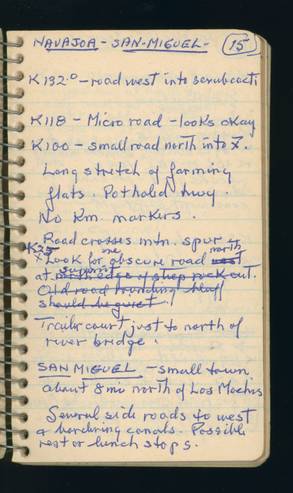 NAVAJOA - SAN-MIGUEL - 15
K132.0 - road west into scrub cacti
K118 - Micro road - looks okay
K100 - small road north into
Long stretch of farming
flats. Potholed hwy.
No Km markers.
Road crosses mtn. spur
K25 one north
* Look for obscure road west
summit
at north edge of steep rock cut.
Old road rounding bluff
should be quiet.
Trailer court just to north of
river bridge.
SAN MIGUEL - small town
about 8 mi north of Los Mochis
Several side roads to west
& bordering canals. Possible
rest or lunch stops.